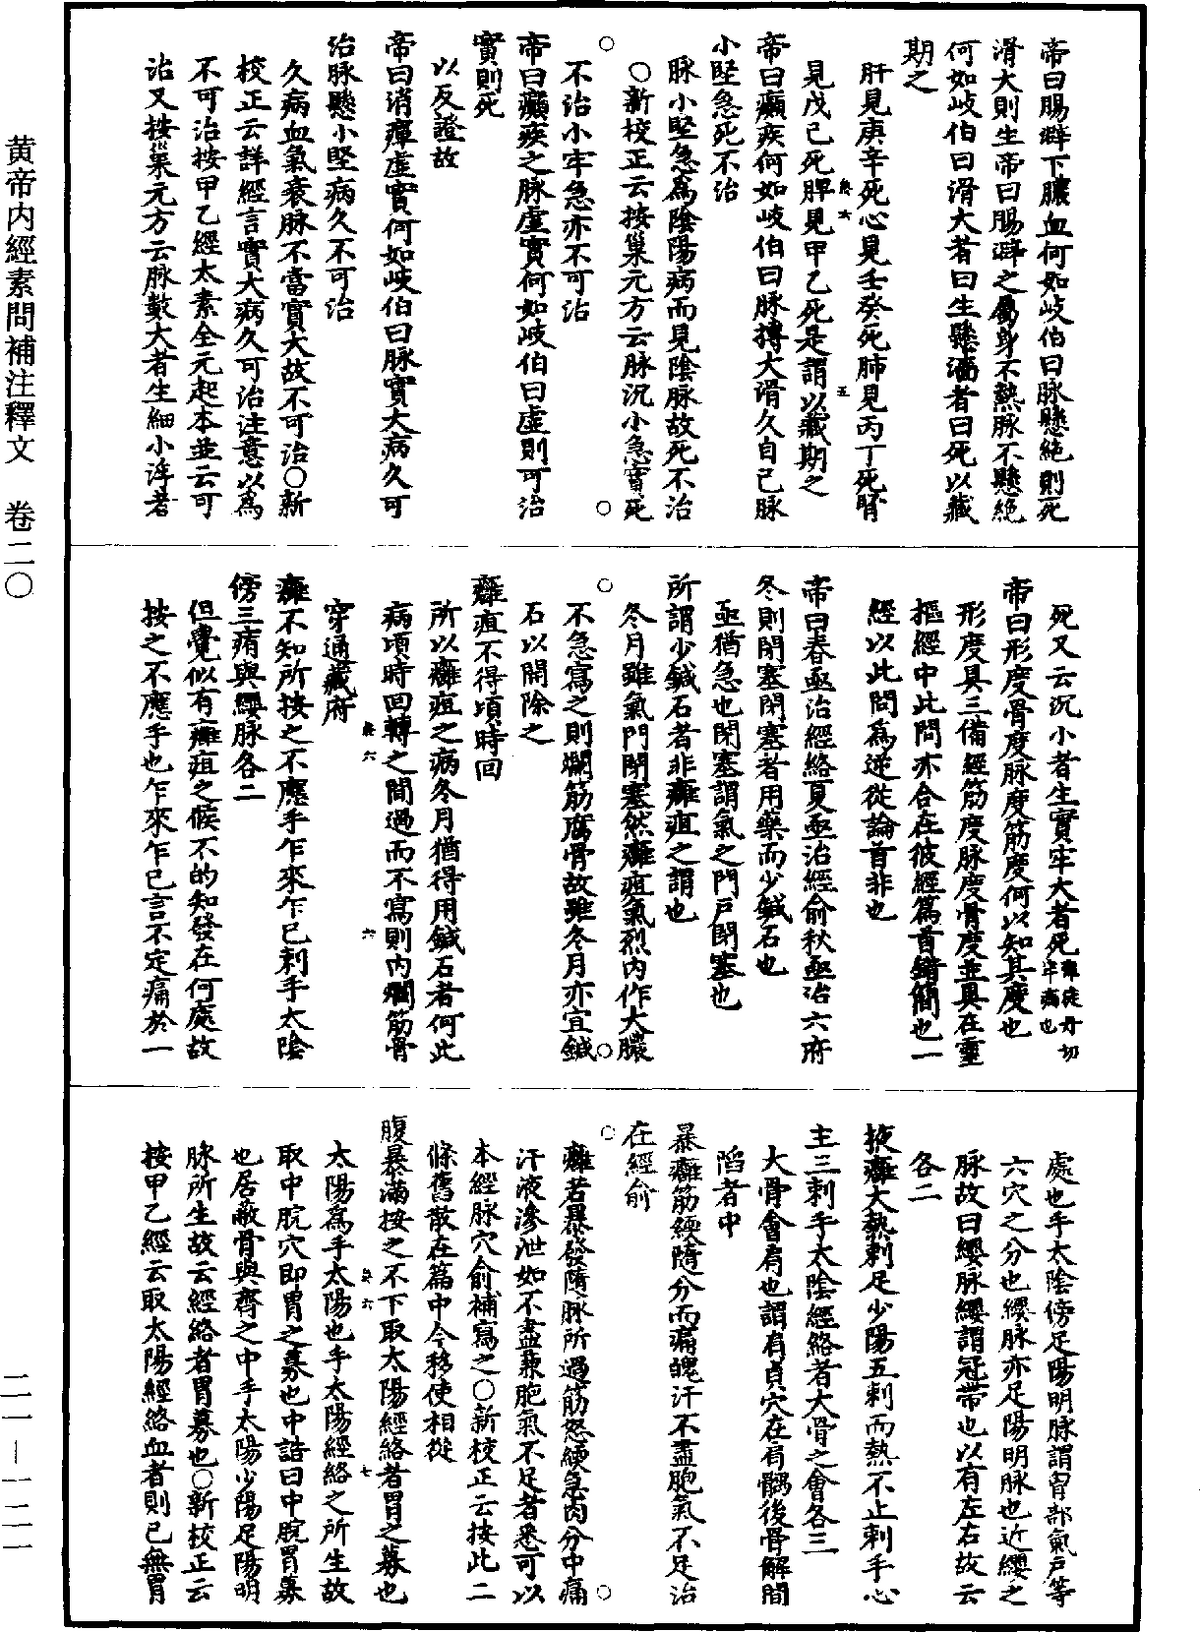 黄帝内經素問補注釋文　卷二〇
帝曰腸澼下膿血何如岐伯曰脉懸絶則死
滑大則生帝曰腸澼之屬身不熱脉不懸絶
何如岐伯曰滑大者曰生懸濇者曰死以藏
期之
肝見庚辛死心見壬癸死肺見丙丁死腎
見戊己死脾見甲乙死是謂以藏期之
帝曰癲疾何如岐伯曰脉搏大滑久自已脉
小堅急死不治
脉小堅急爲陰陽病而見陰脉故死不治
○新校正云按巢元方云脉沉小急實死
不治小牢急亦不可治
帝曰癲疾之脉虛實何如岐伯曰虛則可治
實則死
以反證故
帝曰消癉虛實何如岐伯曰脉實大病久可
治脉懸小堅病久不可治
久病血氣衰脉不當實大故不可治○新
校正云詳經言實大病久可治注意以爲
不可治按甲乙經太素全元起本並云可
治又按巢元方云脉數大者生細小浮者
死又云沉小者生實牢大者死
帝曰形度骨度脉度筋度何以知其度也
形度具三備經筋度脉度骨度並具在靈
樞經中此問亦合在彼經篇首錯簡也一
經以此問爲逆從論首非也
帝曰春亟治經絡夏亟治經俞秋亟治六府
冬則閉塞閉塞者用藥而少鍼石也
亟猶急也閉塞謂氣之門戶閉塞也
所謂少鍼石者非癰疽之謂也
冬月雖氣門閉塞然癰疽氣烈内作大膿
不急寫之則爛筋腐骨故雖冬月亦宜鍼
石以開除之
癰疽不得頃時回
所以癰疽之病冬月猶得用鍼石者何此
病頃時回轉之間過而不寫則内爛筋骨
穿通藏府
癰不知所按之不應手乍來乍已刺手太陰
傍三痏與纓脉各二
但覺似有癰疽之候不的知發在何處故
按之不應手也乍來乍已言不定痛於一
處也手太陰傍足陽明脉謂胷部氣戶等
六穴之分也纓脉亦足陽明脉也近纓之
脉故曰纓脉纓謂冠帶也以有左右故云
各二
掖癰大熱刺足少陽五刺而熱不止刺手心
主三刺手太陰經絡者大骨之會各三
大骨會肩也謂肩貞穴在肩髃後骨解間
陷者中
暴癰筋緛隨分而痛魄汗不盡胞氣不足治
在經俞
癰若暴發隨脉所過筋怒緛急肉分中痛
汗液滲泄如不盡兼胞氣不足者悉可以
本經脉穴俞補寫之○新校正云按此二
條舊散在篇中今移使相從
腹暴滿按之不下取太陽經絡者胃之募也
太陽爲手太陽也手太陽經絡之所生故
取中脘穴即胃之募也中誥曰中脘胃募
也居蔽骨與齊之中手太陽少陽足陽明
脉所生故云經絡者胃募也○新校正云
按甲乙經云取太陽經絡血者則已無胃
二一—一二二